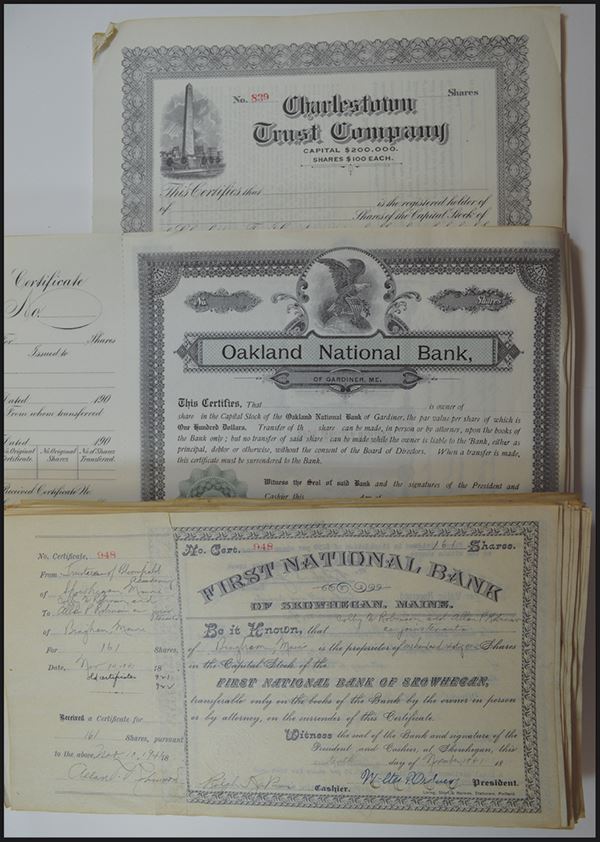 No. 839 Shares
Charlestown
Trust Company
CAPITAL $200,000.
SHARES $100 EACH.
This Certifies that
is the registered holder of
of Shares of the Capital Stock of
Certificate
No.
For Shares
Issued to
Dated 190
From whom transferred
Dated 190
No. Original Certificate. No. Original Shares. No. of Shares Transferred.
Received Certificate No.
No. Shares
Oakland National Bank,
OF GARDINER, ME.
This Certifies, That is owner of
share in the Capital Stock of the Oakland National Bank of Gardiner, the par value per share of which is
One Hundred Dollars. Transfer of th share can be made, in person or by attorney, upon the books
of the Bank only; but no transfer of said share can be made while the owner is liable to the Bank, either as
principal, debtor or otherwise, without the consent of the Board of Directors. When a transfer is made,
this certificate must be surrendered to the Bank.
Witness the Seal of said Bank and the signatures of the President and
Cashier this day of
No. Certificate, 948
From Trustees of Bloomfield
Academy
of Skowhegan Maine
To
of Bingham Maine
For 161 Shares,
Date, Nov 10, 18
old certificates 921
922
Received a Certificate for
161 Shares, pursuant
to the above, Nov 10, 1941 18
No. Cert. 948 161 Shares.
FIRST NATIONAL BANK
OF SKOWHEGAN, MAINE.
Be it Known, that
as joint tenants
of Bingham, Maine is the proprietor of one hundred sixty one Shares
in the Capital Stock of the
FIRST NATIONAL BANK OF SKOWHEGAN,
transferable only on the books of the Bank by the owner in person
or by attorney, on the surrender of this Certificate.
Witness the seal of the Bank and signature of the
President and Cashier, at Skowhegan, this
tenth day of November 1941 18
Cashier. President.